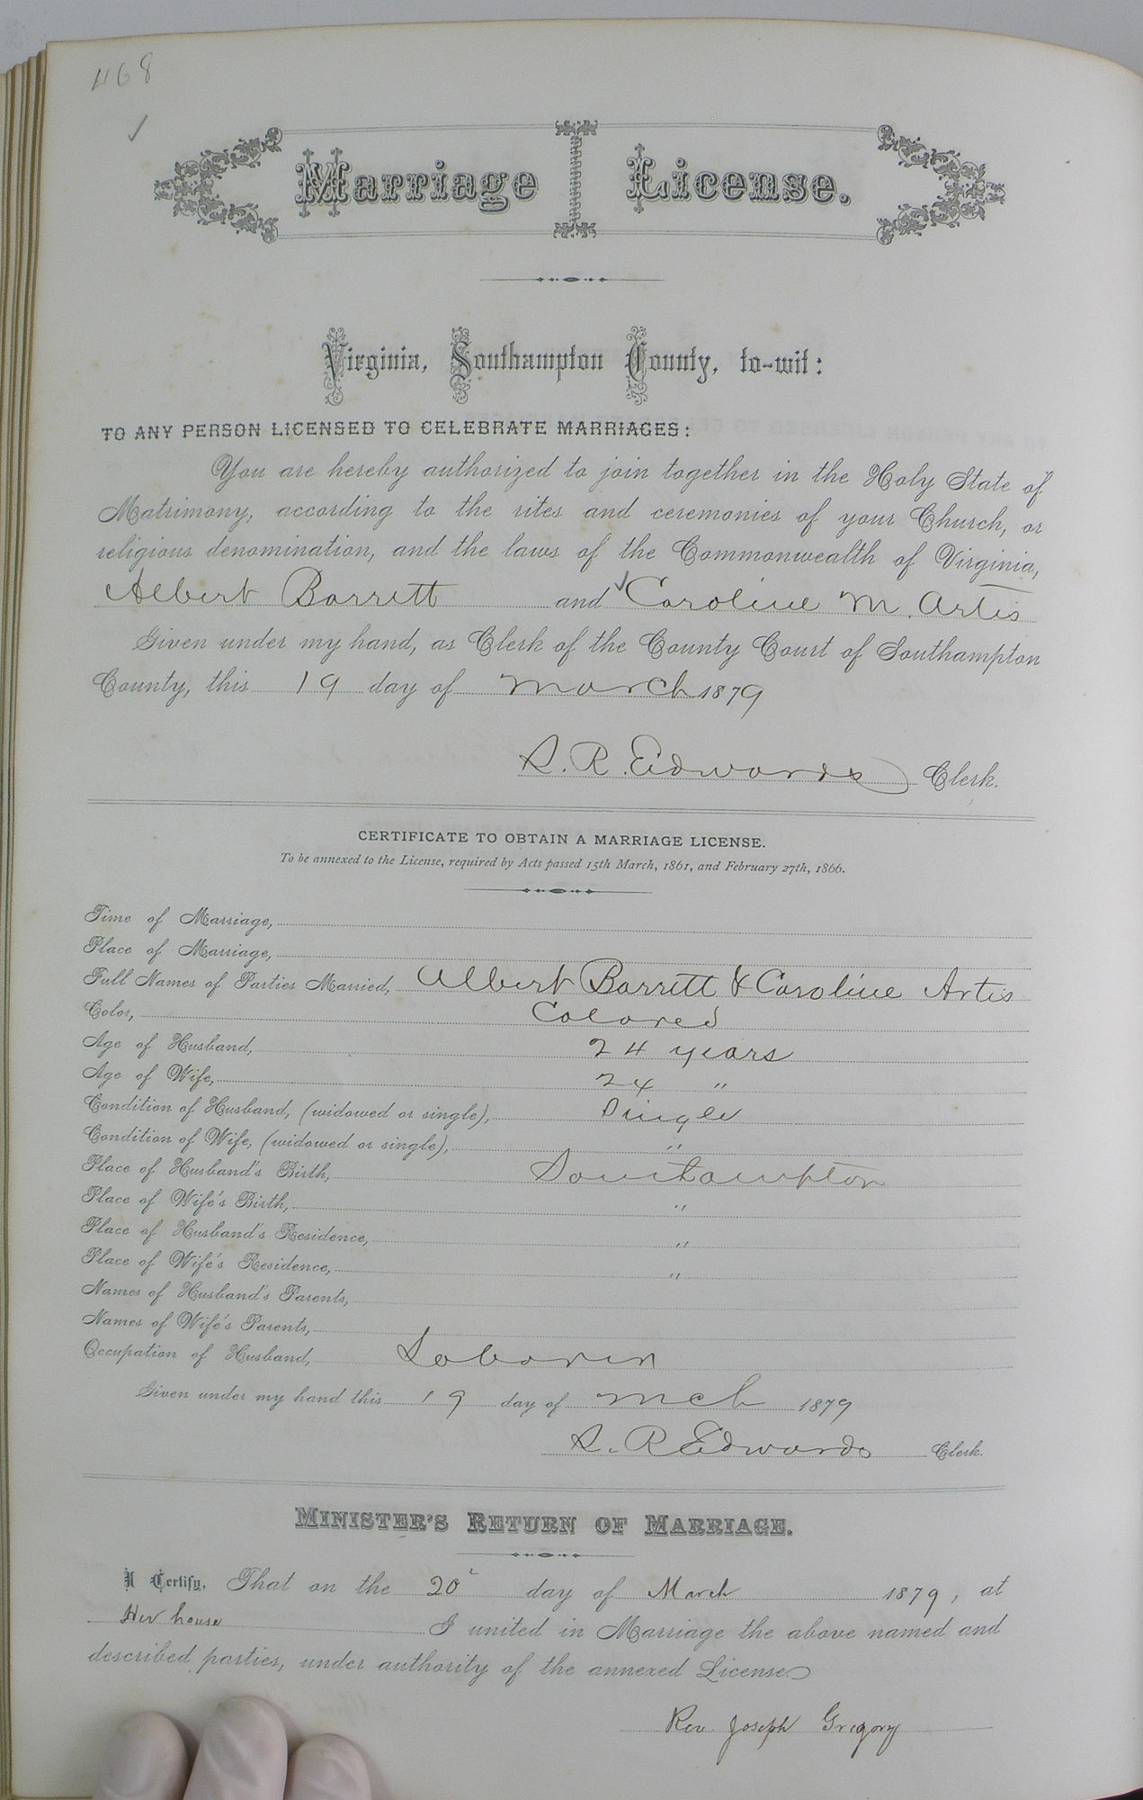 468
Marriage License.
Virginia, Southampton County, to-wit:
TO ANY PERSON LICENSED TO CELEBRATE MARRIAGES:
You are hereby authorized to join together in the Holy State of
Matrimony, according to the rites and ceremonies of your Church, or
religious denomination, and the laws of the Commonwealth of Virginia,
Albert Barrett and Caroline M. Artis
Given under my hand, as Clerk of the County Court of Southampton
County, this 19 day of March 1879
L. R. Edwards Clerk.
CERTIFICATE TO OBTAIN A MARRIAGE LICENSE.
To be annexed to the License, required by Acts passed 15th March, 1861, and February 27th, 1866.
Time of Marriage,
Place of Marriage,
Full Names of Parties Married, Albert Barrett & Caroline Artis
Color, Colored
Age of Husband, 24 years
Age of Wife, 24 "
Condition of Husband, (widowed or single), Single
Condition of Wife, (widowed or single), "
Place of Husband's Birth, Southampton
Place of Wife's Birth, "
Place of Husband's Residence, "
Place of Wife's Residence, "
Names of Husband's Parents,
Names of Wife's Parents,
Occupation of Husband, Laborer
Given under my hand this 19 day of Mch 1879
L. R. Edwards Clerk.
MINISTER'S RETURN OF MARRIAGE.
I Certify, That on the 20 day of March 1879, at
Her house I united in Marriage the above named and
described parties, under authority of the annexed License.
Rev. Joseph Gregory